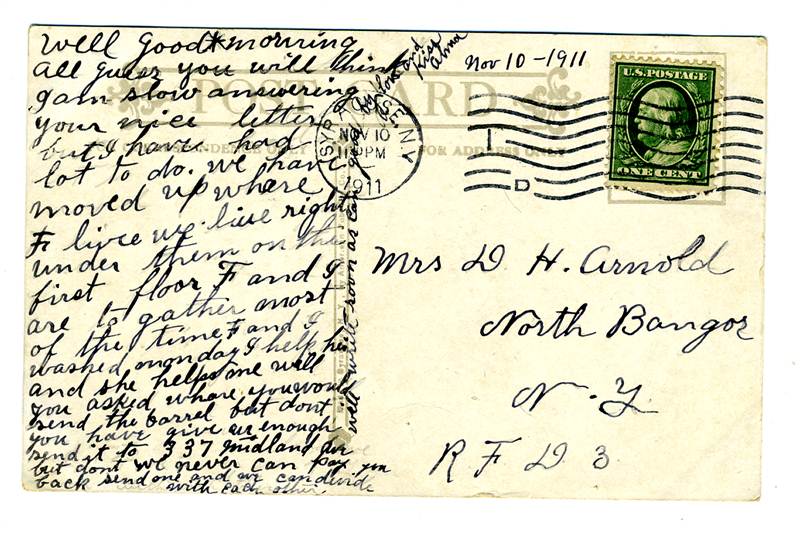 Well Good mourning
all guess you will think
I am slow answering
your nice letter
but I have had
lot to do. we have
moved up where
F lives we live right
under them on the
first floor F and I
are to gather most
of the time F and I
washed monday I help her
and she helps me well
you asked whare you would
send the barrel but dont
you have give us enough
send it to 337 midland ave
but dont we never can pay you
back send one and we can divide
with each other.
well write soon as can
love and
kiss
Alma
Nov 10-1911
POST CARD
CORRESPONDENCE
FOR ADDRESS ONLY
SYRACUSE, N.Y.
NOV 10
PM
1911
1
D
U.S. POSTAGE
ONE CENT
Mrs D H. Arnold
North Bangor
N.Y.
R F D 3